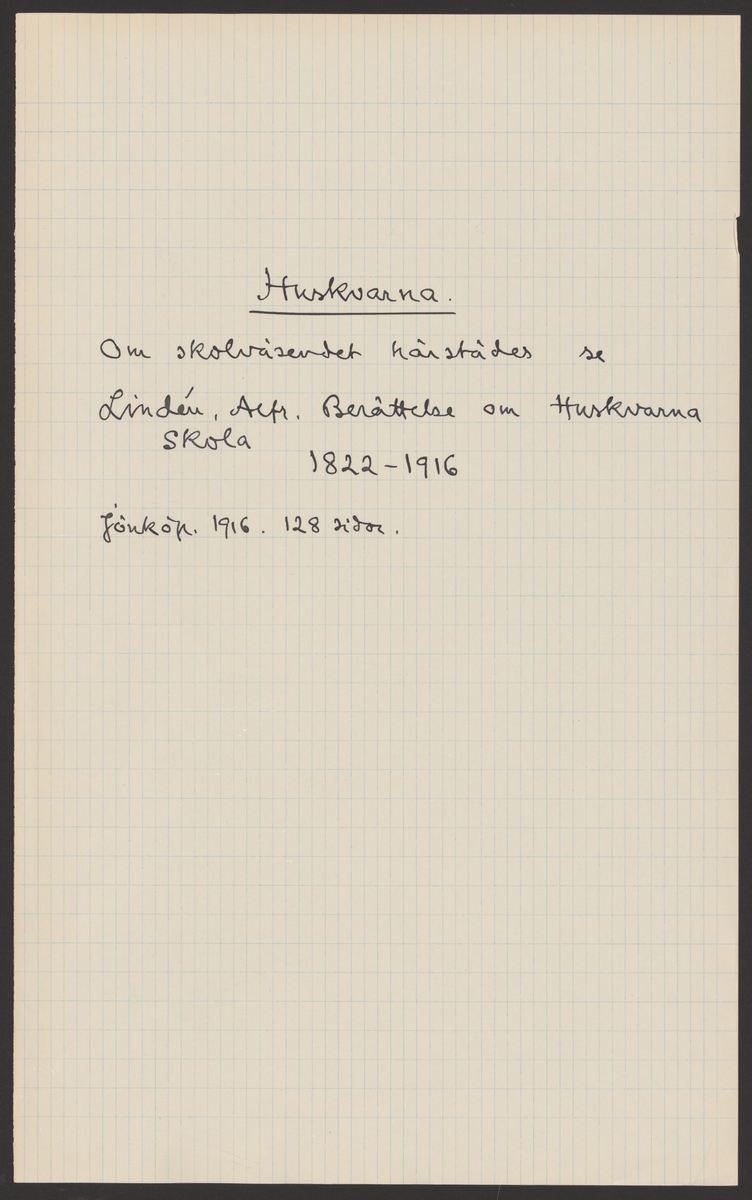 Huskvarna.
Om skolväsendet härstädes se
Lindén, Alfr. Berättelse om Huskvarna
Skola
1822-1916
Jönköp. 1916. 128 sidor.